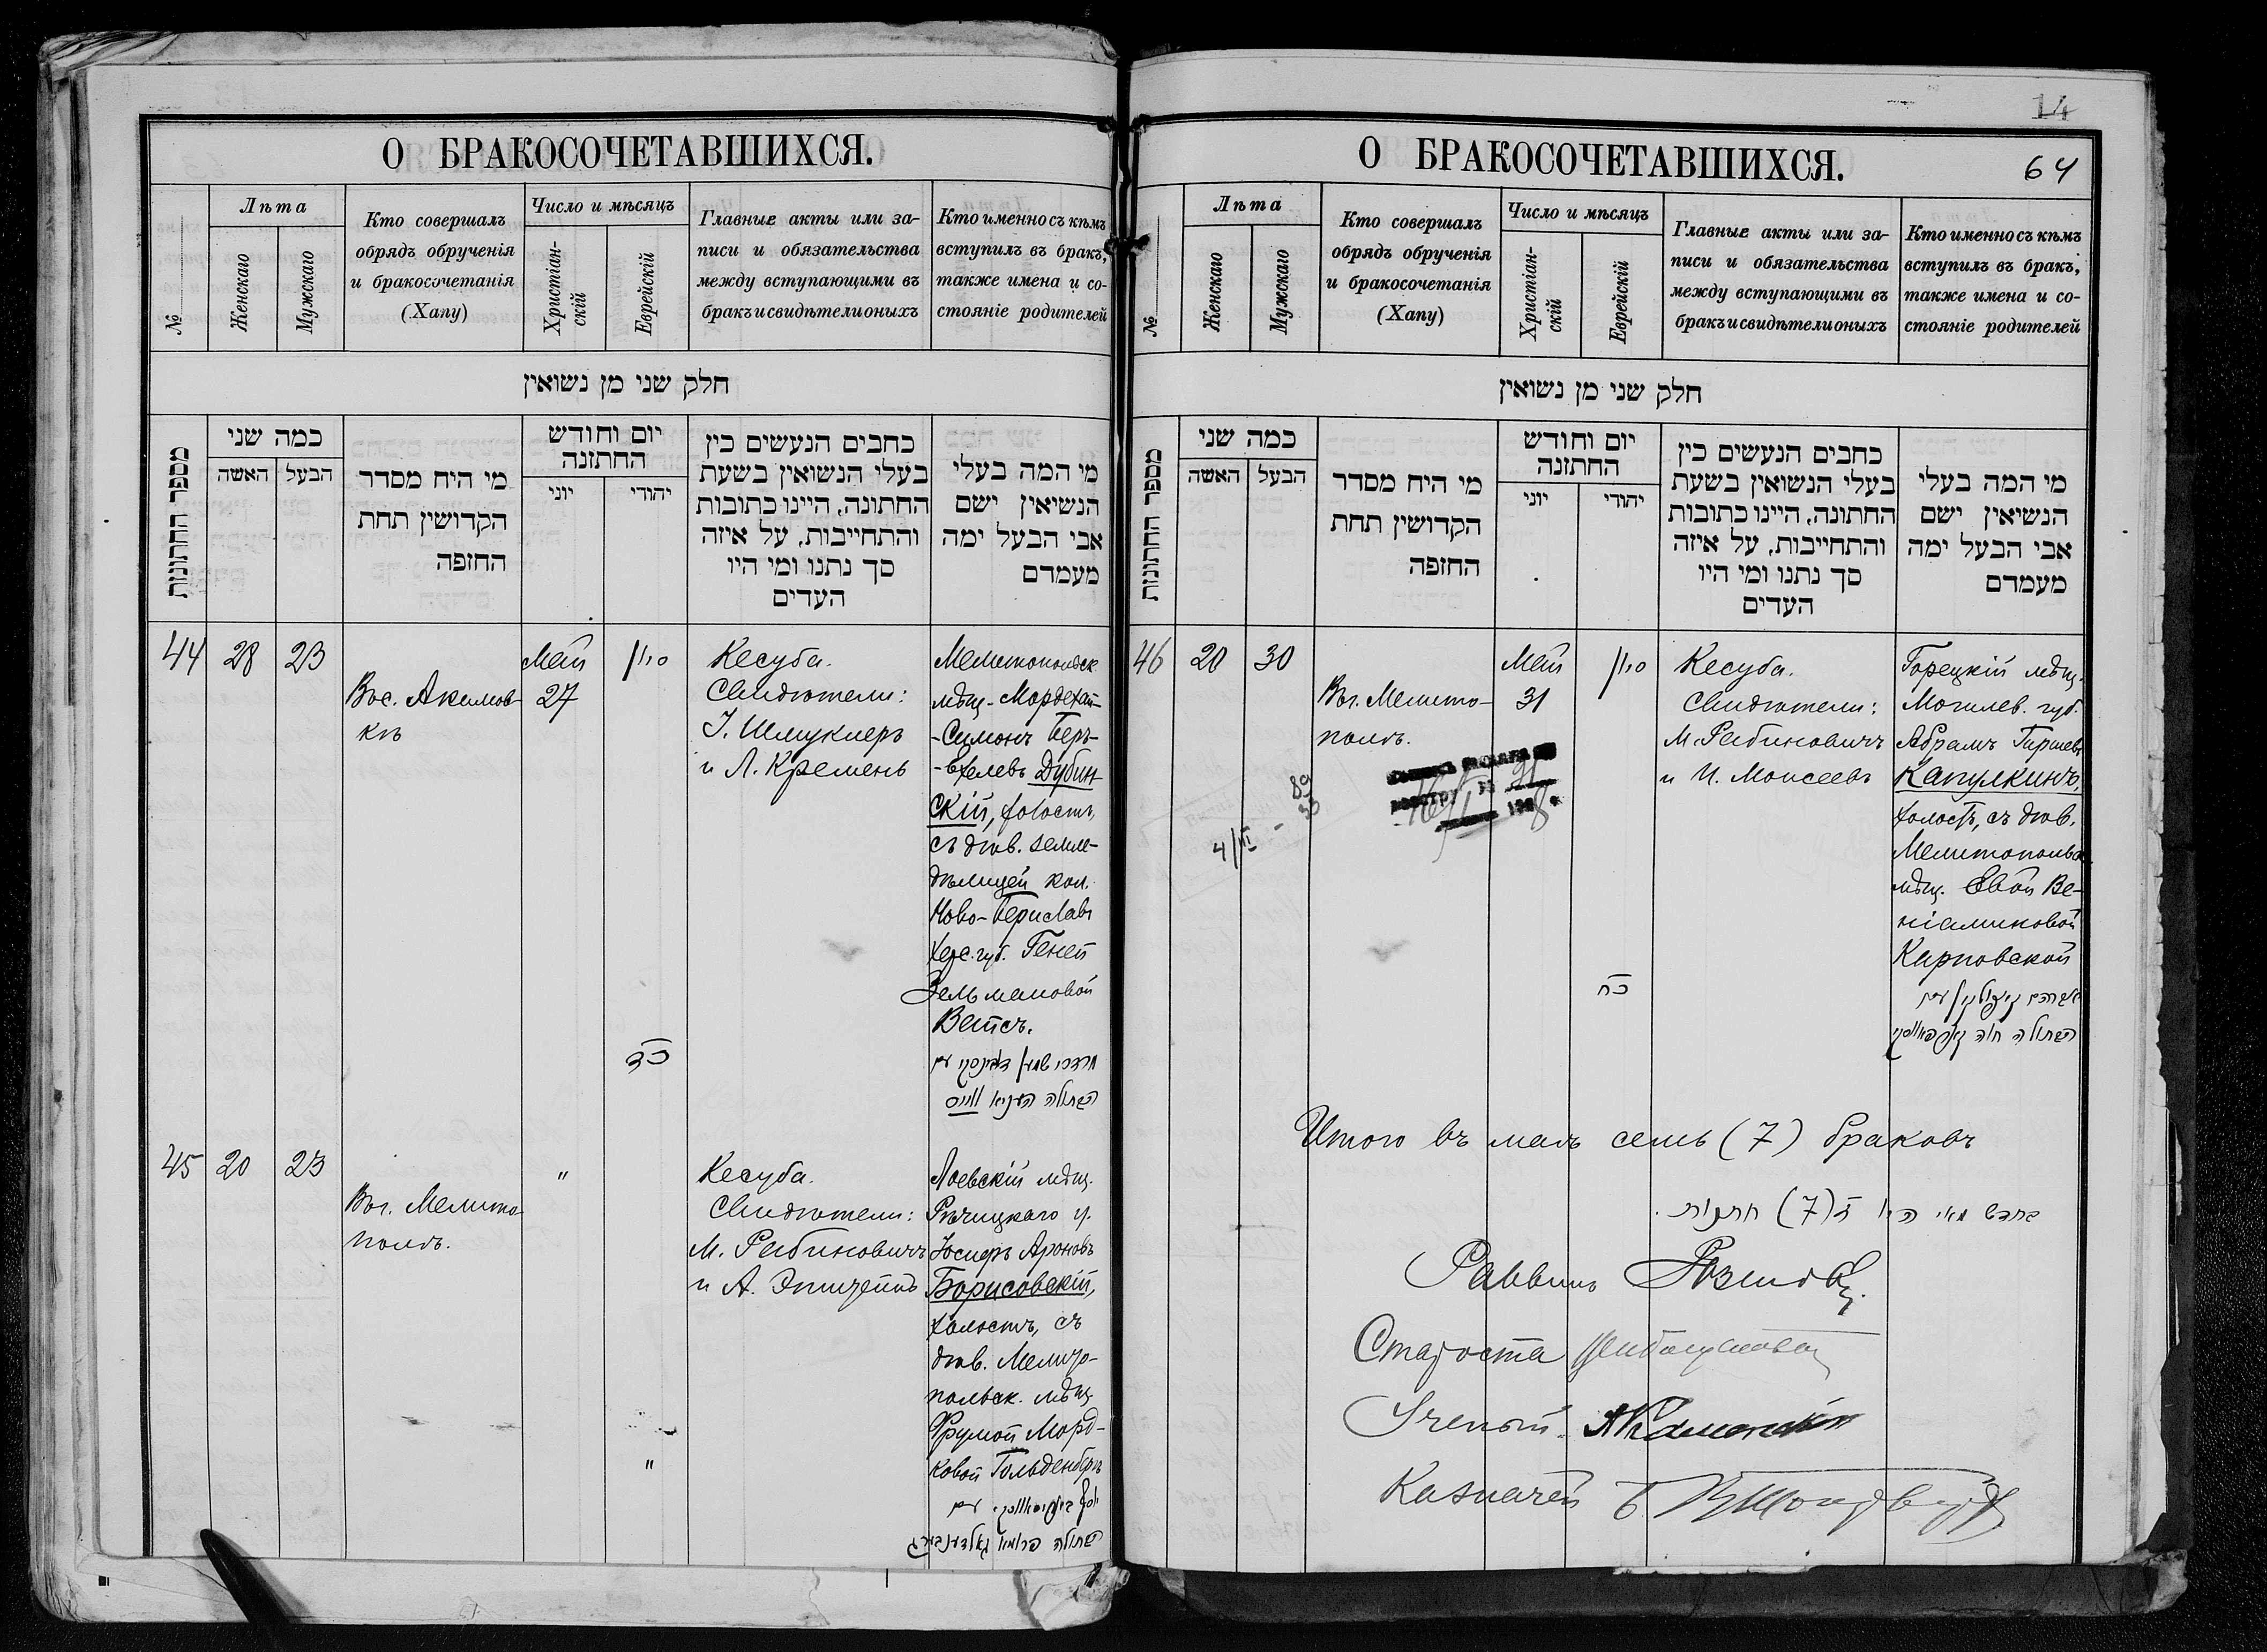 О БРАКОСОЧЕТАВШИХСЯ.
№
Лѣта
Женскаго
Мужскаго
Кто совершалъ
обрядъ обрученія
и бракосочетанія
(Хапу)
Число и мѣсяцъ
Христіан-
скій
Еврейскій
Главные акты или за-
писи и обязательства
между вступающими въ
бракъ и свидѣтели оныхъ
Кто именно съ кѣмъ
вступилъ въ бракъ,
также имена и со-
стояніе родителей
חלק שני מן נשואין
מספר החתונות
כמה שני
האשה
הבעל
מי היח מסדר
הקדושין תחת
החופה
יום וחודש
החתונה
יוני
יהודי
כתבים הנעשים בין
בעלי הנשואין בשעת
החתונה, היינו כתובות
והתחייבות, על איזה
סך נתנו ומי היו
העדים
מי המה בעלי
הנשיאין ישם
אבי הבעל ימה
מעמדם
44
28
23
Въ с. Акимов-
кѣ
Май
27
סיון
כד
Кесуба.
Свидѣтели:
І. Шмуклеръ
и Л. Кремень
Мелитопольск.
мѣщ. Мордехай-
-Симонъ Беръ-
-Хелевъ Дубин-
скій, холостъ,
съ дѣв. земле-
дѣлицей кол.
Ново-Бериславъ
Херс. губ. Геней
Зельмановой
Вейсъ.
מרדכי שמעון דובינסקי עם
הבתולה העניא ווייס
45
20
23
Въ г. Мелито-
полѣ.
"
"
Кесуба.
Свидѣтели:
М. Рабиновичъ
и А. Эпштейнъ
Лоевскій мѣщ.
Рѣчицкаго у.
Іосифъ Ароновъ
Борисовскій,
холостъ, съ
дѣв. Мелито-
польск. мѣщ.
Фрумой Морд-
ковой Гольденбергъ
יוסף באריסאווסקי עם
הבתולה פרומא גאלדענבערג
14
О БРАКОСОЧЕТАВШИХСЯ.
64
№
Лѣта
Женскаго
Мужскаго
Кто совершалъ
обрядъ обрученія
и бракосочетанія
(Хапу)
Число и мѣсяцъ
Христіан-
скій
Еврейскій
Главные акты или за-
писи и обязательства
между вступающими въ
бракъ и свидѣтели оныхъ
Кто именно съ кѣмъ
вступилъ въ бракъ,
также имена и со-
стояніе родителей
חלק שני מן נשואין
מספר החתונות
כמה שני
האשה
הבעל
מי היח מסדר
הקדושין תחת
החופה
יום וחודש
החתונה
יוני
יהודי
כתבים הנעשים בין
בעלי הנשואין בשעת
החתונה, היינו כתובות
והתחייבות, על איזה
סך נתנו ומי היו
העדים
מי המה בעלי
הנשיאין ישם
אבי הבעל ימה
מעמדם
46
20
30
Въ г. Мелито-
полѣ.
Май
31
סיון
כח
Кесуба.
Свидѣтели:
М. Рабиновичъ
и И. Моисеевъ
Горецкій мѣщ.
Могилев. губ.
Абрамъ Гиршевъ
Капулкинъ,
холостъ, съ дѣв.
Мелитопольск.
мѣщ. Евой Ве-
ніаминовой
Карповской
אברהם קאפולקין עם
הבתולה חוה קארפאווסקי
Итого въ маѣ семь (7) браковъ
בחדש מאי היו ז (7) חתונות.
Раввинъ
Староста
Ученый
Казначей